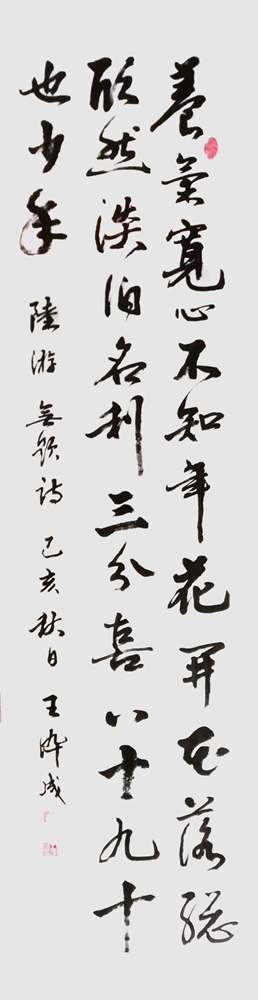 養氣寬心不知年花開花落總
欣然淡泊名利三分喜八十九十
也少年 陸游 無題詩 己亥秋日 王成